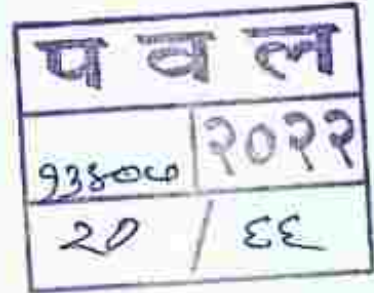 प व ल
१३४०७ २०२२
२० / ६६